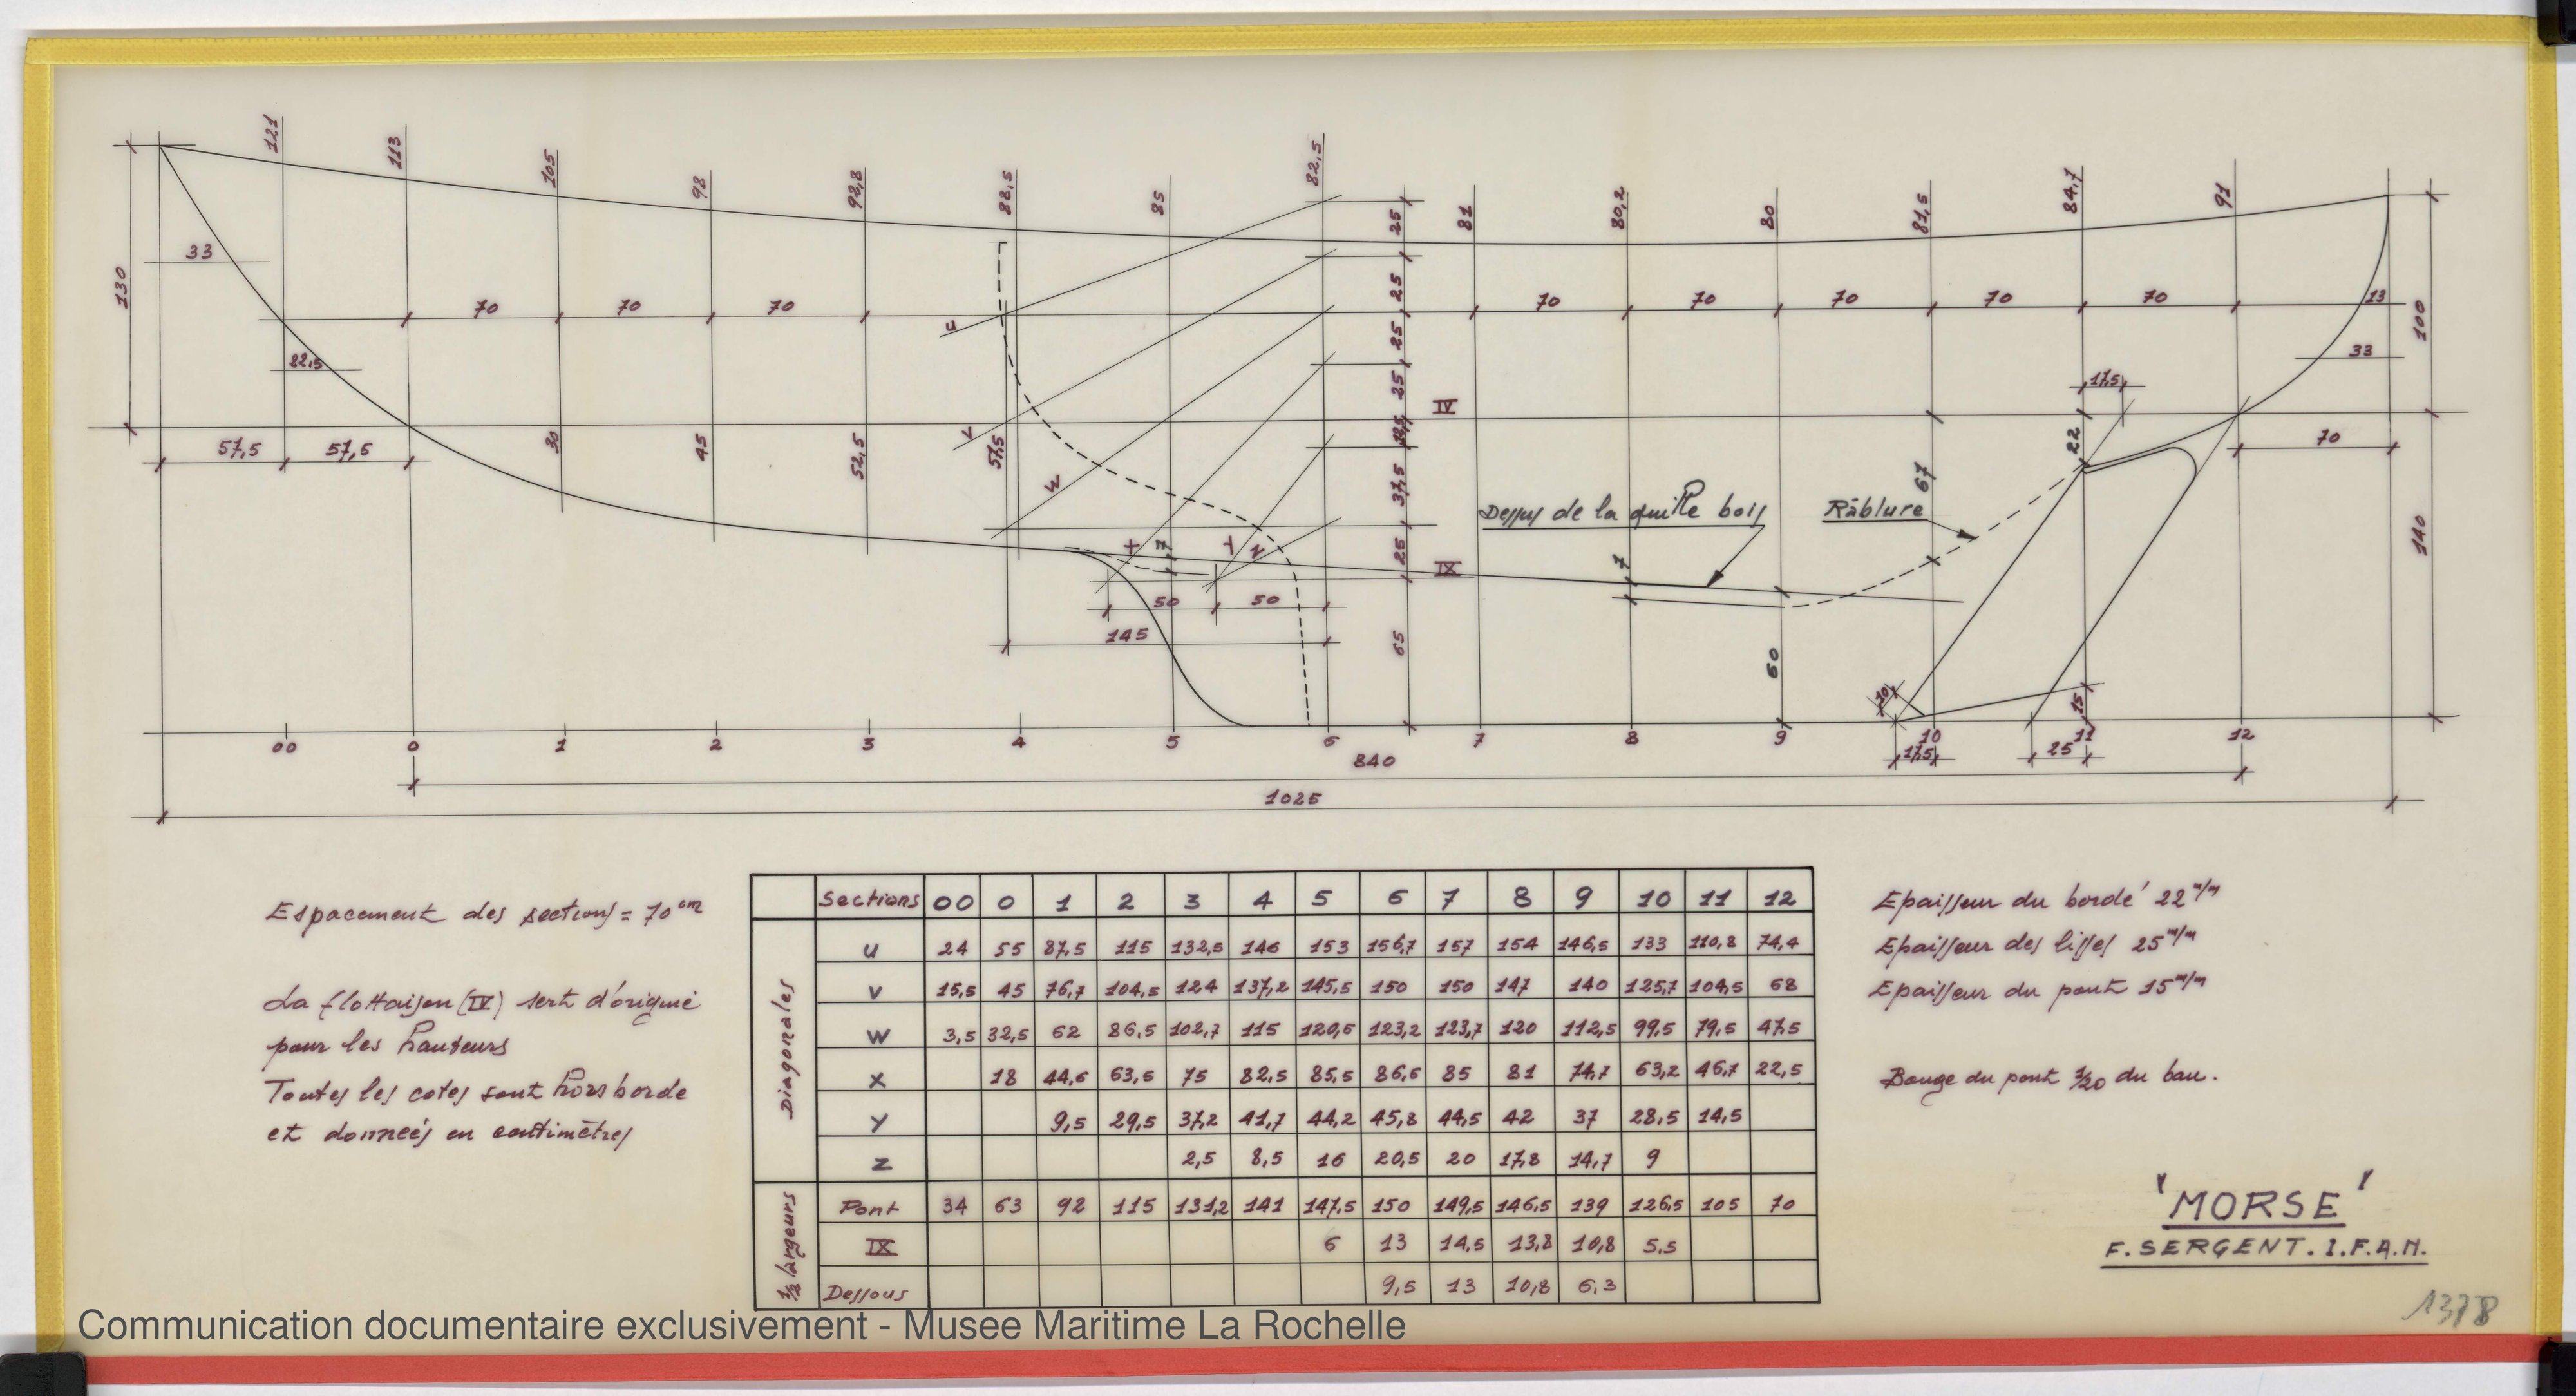 121
113
105
98
92,8
88,5
85
82,5
81
80,2
80
81,5
84,7
91
130
33
22,5
57,5
57,5
70
70
70
30
45
52,5
57,5
u
v
w
x
7
Y
Z
25
25
25
25
37,5
25
65
IV
IX
50
50
145
70
70
70
70
70
13
33
100
17,5
22
67
70
140
Dessus de la quille bois
Râblure
7
60
10
15
17,5
25
00 0 1 2 3 4 5 6 7 8 9 10 11 12
840
1025
Espacement des sections = 70 cm
La flottaison (IV) sert d'origine
pour les hauteurs
Toutes les cotes sont hors bordé
et données en centimètres
Sections 00 0 1 2 3 4 5 6 7 8 9 10 11 12
Diagonales
U 24 55 87,5 115 132,5 146 153 156,7 157 154 146,5 133 110,8 74,4
V 15,5 45 76,7 104,5 124 137,2 145,5 150 150 147 140 125,7 104,5 68
W 3,5 32,5 62 86,5 102,7 115 120,5 123,2 123,7 120 112,5 99,5 79,5 47,5
X 18 44,6 63,5 75 82,5 85,5 86,6 85 81 74,7 63,2 46,7 22,5
Y 9,5 29,5 37,2 41,7 44,2 45,8 44,5 42 37 28,5 14,5
Z 2,5 8,5 16 20,5 20 17,8 14,7 9
1/2 largeurs
Pont 34 63 92 115 131,2 141 147,5 150 149,5 146,5 139 126,5 105 70
IX 6 13 14,5 13,8 10,8 5,5
Dessous 9,5 13 10,8 6,3
Epaisseur du bordé 22 m/m
Epaisseur des lisses 25 m/m
Epaisseur du pont 15 m/m
Bouge du pont 1/20 du bau.
'MORSE'
F. SERGENT. I.F.A.N.
1378
Communication documentaire exclusivement - Musee Maritime La Rochelle